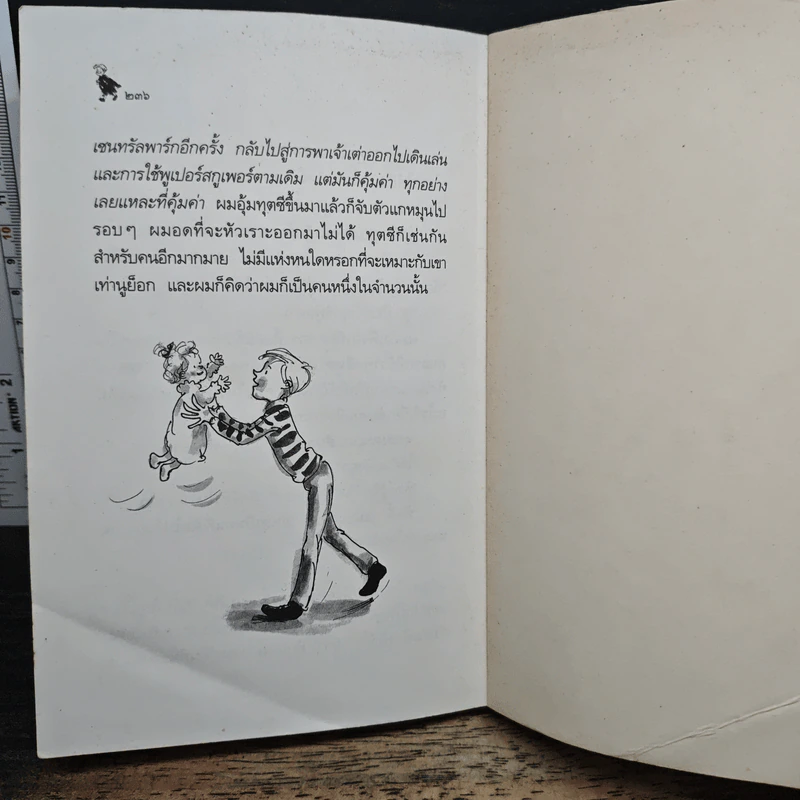 ๒๓๖
เซนทรัลพาร์กอีกครั้ง กลับไปสู่การพาเจ้าเต่าออกไปเดินเล่น
และการใช้พูเปอร์สกูเพอร์ตามเดิม แต่มันก็คุ้มค่า ทุกอย่าง
เลยแหละที่คุ้มค่า ผมอุ้มทุตซีขึ้นมาแล้วก็จับตัวแกหมุนไป
รอบๆ ผมอดที่จะหัวเราะออกมาไม่ได้ ทุตซีก็เช่นกัน
สำหรับคนอีกมากมาย ไม่มีแห่งหนใดหรอกที่จะเหมาะกับเขา
เท่านูย็อก และผมก็คิดว่าผมก็เป็นคนหนึ่งในจำนวนนั้น
11
10
2
1